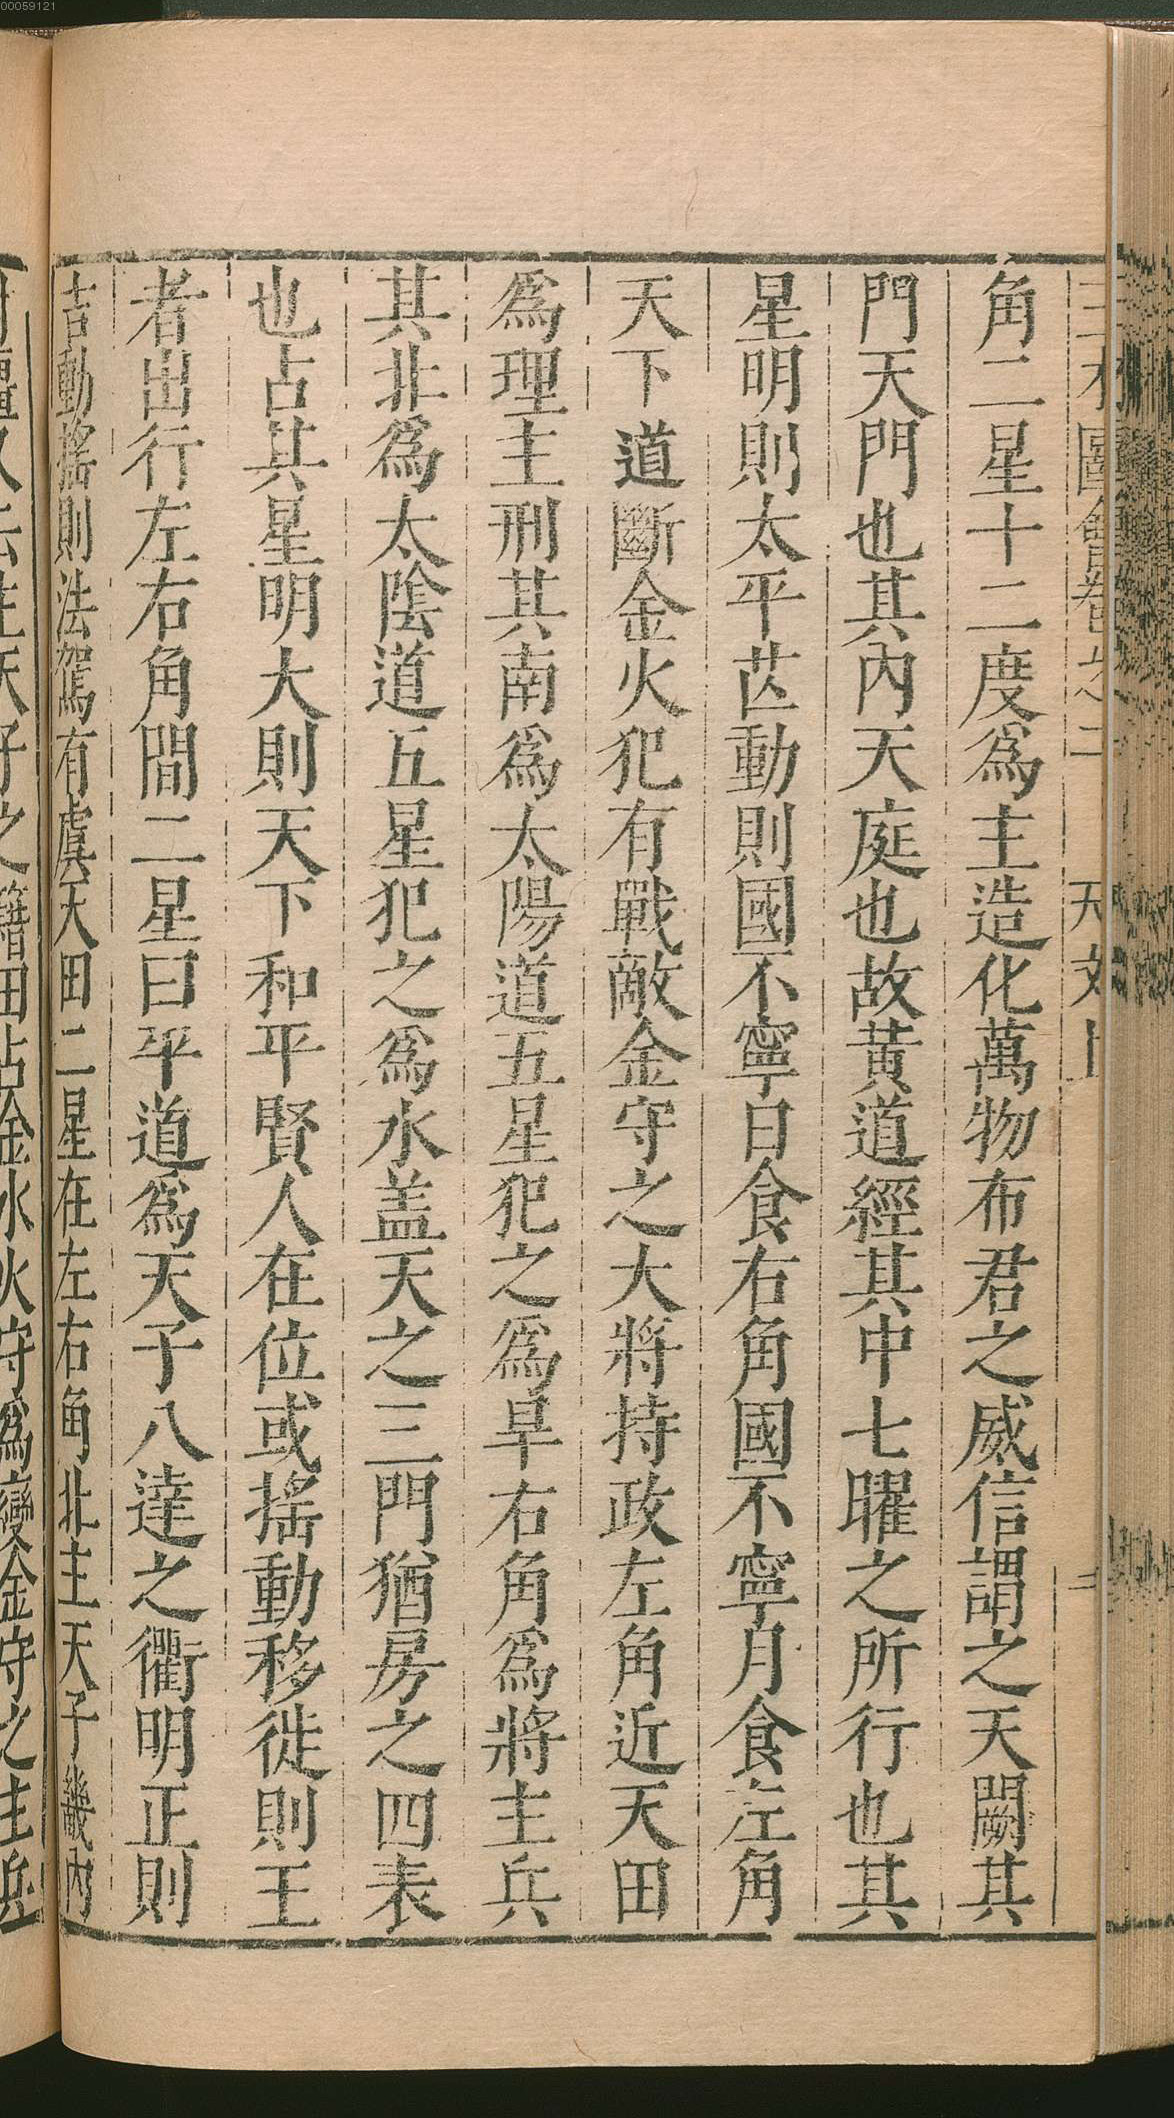 角二星十二度為主造化萬物布君之威信謂之天闕其
門天門也其內天庭也故黃道經其中七曜之所行也其
星明則太平芒動則國不寧日食右角國不寧月食左角
天下道斷金火犯有戰敵金守之大將持政左角近天田
為理主刑其南為太陽道五星犯之為旱右角為將主兵
其北為太陰道五星犯之為水盖天之三門猶房之四表
也占其星明大則天下和平賢人在位或搖動移徙則王
者出行左右角間二星曰平道為天子八達之衢明正則
吉動搖則法駕有虞天田二星在左右角北主天子畿內
之籍田占金水火守為變金守之主兵
00059121